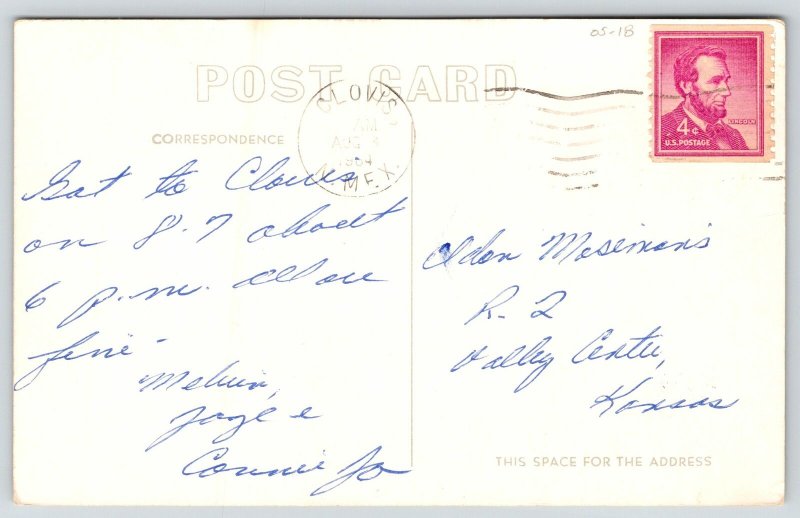 05-18
POST CARD
CLOVIS
AM
AUG
1964
N. MEX.
LINCOLN
4¢
U.S. POSTAGE
CORRESPONDENCE
Got to Clovis
on 8-7 about
6 p.m. All are
fine -
Melvin,
Joyce
Connie Jo
Eldon Mosiman's
R-2
Valley Center,
Kansas
THIS SPACE FOR THE ADDRESS